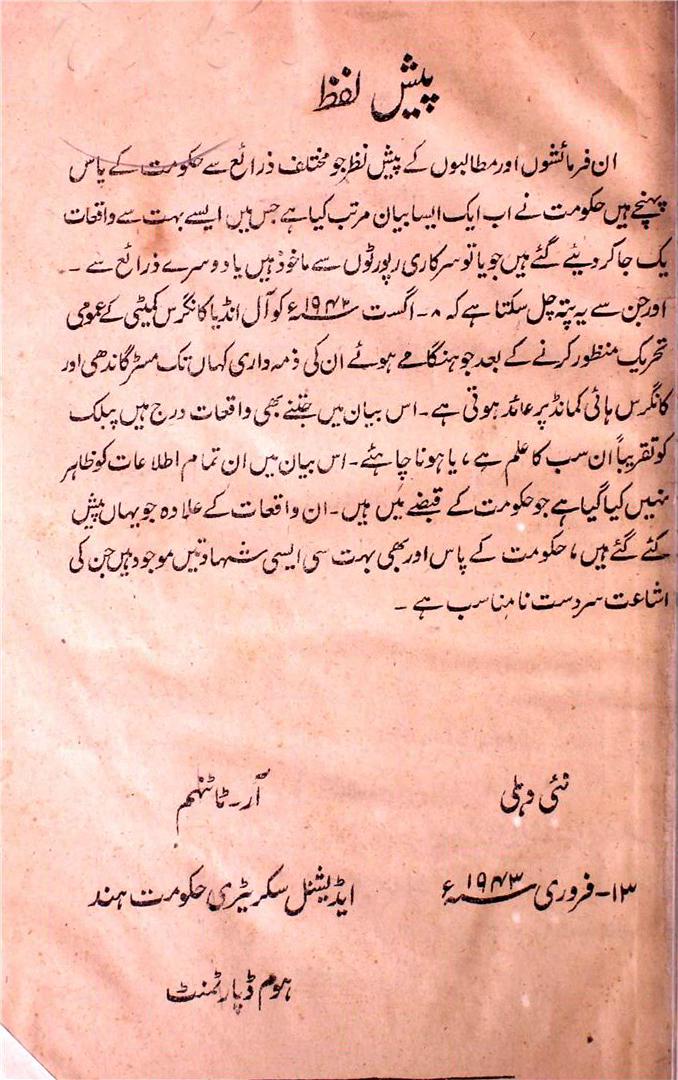 پیش لفظ
ان فرمائشوں اور مطالبوں کے پیش نظر جو مختلف ذرائع سے حکومت کے پاس
پہنچے ہیں حکومت نے اب ایک ایسا بیان مرتب کیا ہے جس میں ایسے بہت سے واقعات
یک جا کر دیئے گئے ہیں جو یا تو سرکاری رپورٹوں سے ماخوذ ہیں یا دوسرے ذرائع سے ۔
اور جن سے یہ پتہ چل سکتا ہے کہ ۸۔ اگست ۱۹۴۲ء کو آل انڈیا کانگرس کمیٹی کے عمومی
تحریک منظور کرنے کے بعد جو ہنگامے ہوئے ان کی ذمہ داری کہاں تک مسٹر گاندھی اور
کانگرس ہائی کمانڈ پر عائد ہوتی ہے۔ اس بیان میں جتنے بھی واقعات درج ہیں پبلک
کو تقریباً ان سب کا علم ہے، یا ہونا چاہئے۔ اس بیان میں ان تمام اطلاعات کو ظاہر
نہیں کیا گیا ہے جو حکومت کے قبضے میں ہیں۔ ان واقعات کے علاوہ جو یہاں پیش
کئے گئے ہیں، حکومت کے پاس اور بھی بہت سی ایسی شہادتیں موجود ہیں جن کی
اشاعت سردست نامناسب ہے ۔
نئی دہلی
آر۔ ٹاٹنہم
۱۳۔ فروری ۱۹۴۳ء
ایڈیشنل سکریٹری حکومت ہند
ہوم ڈپارٹمنٹ